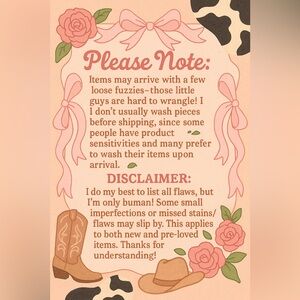 Please Note:
Items may arrive with a few
loose fuzzies–those little
guys are hard to wrangle! I
I don't usually wash pieces
before shipping, since some
people have product
sensitivities and many prefer
to wash their items upon
arrival.
DISCLAIMER:
I do my best to list all flaws, but
I'm only human! Some small
imperfections or missed stains/
flaws may slip by. This applies
to both new and pre-loved
items. Thanks for
understanding!